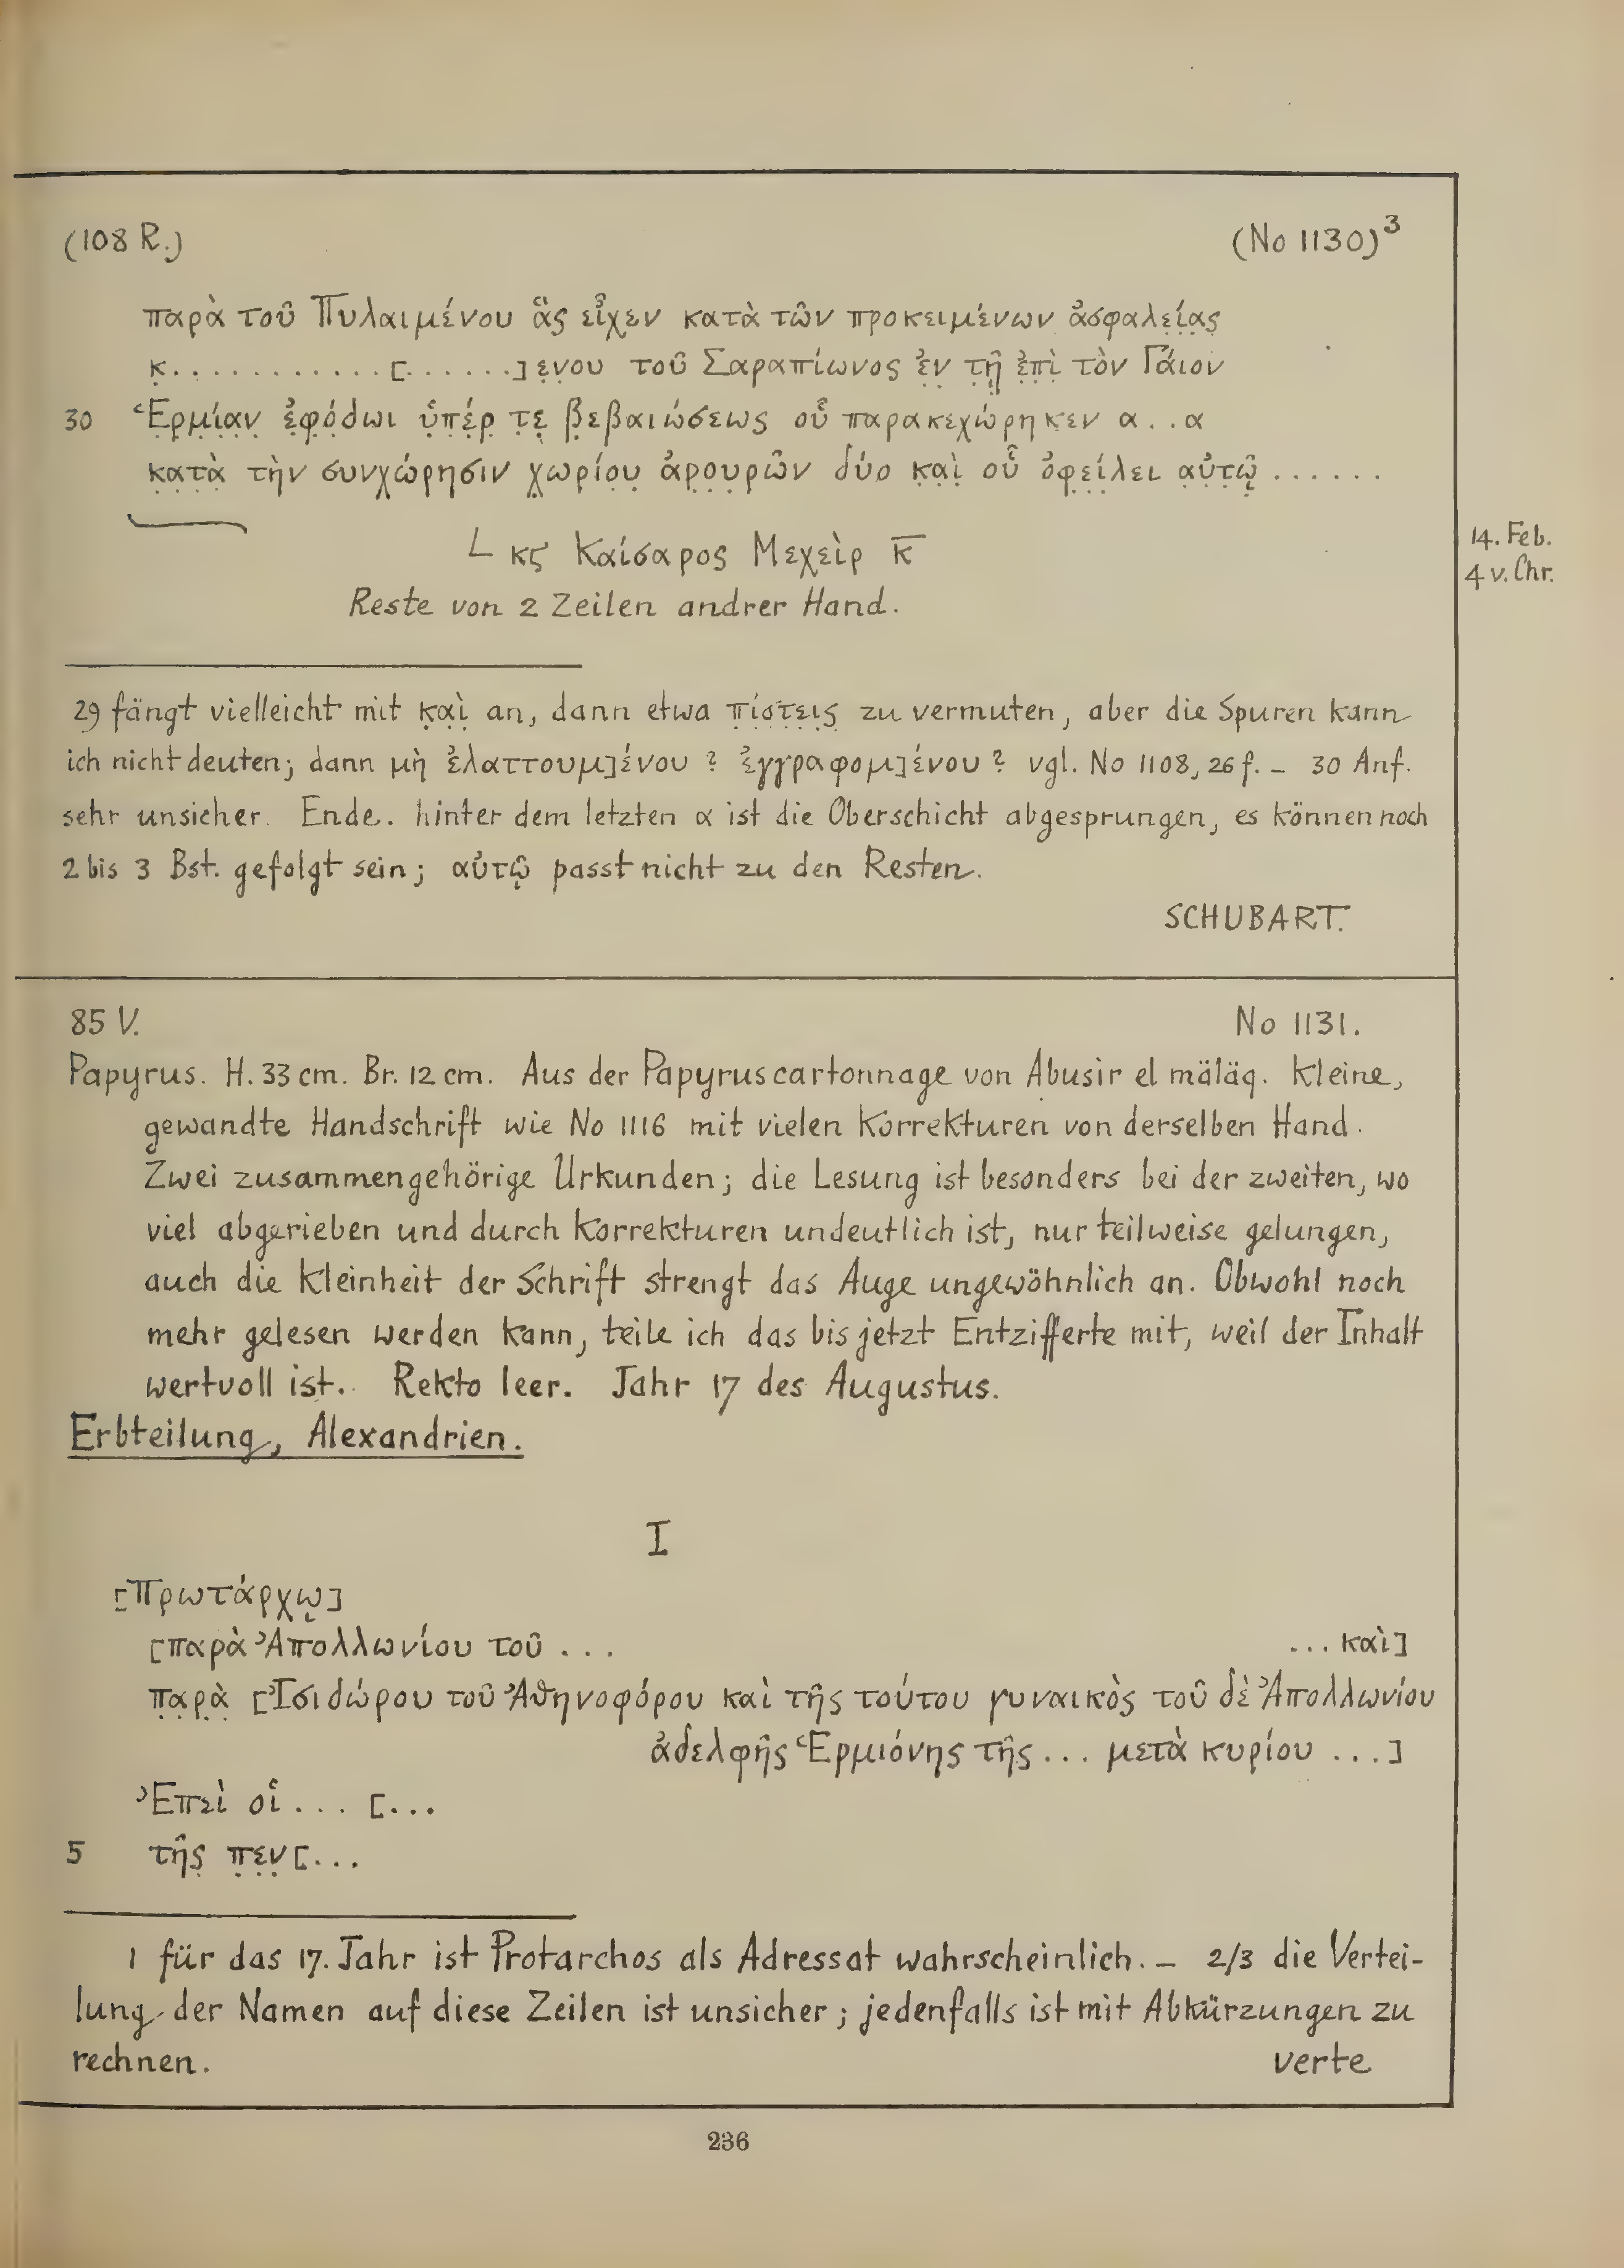 (108 R.) (No 1130)³
παρὰ τοῦ Πυλαιμένου ἃς εἶχεν κατὰ τῶν προκειμένων ἀσφαλε̣ί̣α̣ς̣
κ̣...........[......]ε̣ν̣ου τοῦ Σαραπίωνος ἐ̣ν̣ τ̣ῇ̣ ἐ̣π̣ὶ̣ τὸν Γάιον
30 Ἑ̣ρ̣μ̣ί̣α̣ν̣ ἐ̣φ̣ό̣δ̣ωι ὑ̣π̣έ̣ρ̣ τ̣ε̣ β̣εβαιώσεως οὗ παρακεχώρηκεν α..α
κ̣α̣τ̣ὰ̣ τὴν συνχώρησιν χ̣ωρίο̣υ̣ ἀ̣ρ̣ο̣υ̣ρ̣ῶν δύο κ̣α̣ὶ̣ οὗ ὀφ̣ε̣ί̣λει α̣ὐ̣τ̣ῷ̣......
L κϛ Καίσαρος Μεχεὶρ κ̅
14. Feb.
4 v. Chr.
Reste von 2 Zeilen andrer Hand.
29 fängt vielleicht mit κ̣α̣ὶ̣ an, dann etwa π̣ί̣σ̣τ̣ε̣ι̣ς̣ zu vermuten, aber die Spuren kann
ich nicht deuten; dann μὴ ἐλαττουμ]ένου ? ἐγγραφομ]ένου ? vgl. No 1108, 26 f. – 30 Anf.
sehr unsicher. Ende. hinter dem letzten α ist die Oberschicht abgesprungen, es können noch
2 bis 3 Bst. gefolgt sein; αὐτῷ passt nicht zu den Resten.
SCHUBART.
85 V. No 1131.
Papyrus. H. 33 cm. Br. 12 cm. Aus der Papyruscartonnage von Abusir el mäläq. Kleine,
gewandte Handschrift wie No 1116 mit vielen Korrekturen von derselben Hand.
Zwei zusammengehörige Urkunden; die Lesung ist besonders bei der zweiten, wo
viel abgerieben und durch Korrekturen undeutlich ist, nur teilweise gelungen,
auch die Kleinheit der Schrift strengt das Auge ungewöhnlich an. Obwohl noch
mehr gelesen werden kann, teile ich das bis jetzt Entzifferte mit, weil der Inhalt
wertvoll ist. Rekto leer. Jahr 17 des Augustus.
Erbteilung, Alexandrien.
I
[Πρωτάρχῳ]
[παρὰ Ἀπολλωνίου τοῦ ... ... καὶ]
π̣α̣ρ̣ὰ̣ [Ἰσιδώρου τοῦ Ἀθηνοφόρου καὶ τῆς τούτου γυναικὸς τοῦ δὲ Ἀπολλωνίου
ἀδελφῆς Ἑρμιόνης τῆς ... μετὰ κυρίου ...]
Ἐπεὶ οἱ ... [...
5 τῆς̣ π̣ε̣ν̣[...
1 für das 17. Jahr ist Protarchos als Adressat wahrscheinlich. – 2/3 die Vertei-
lung der Namen auf diese Zeilen ist unsicher; jedenfalls ist mit Abkürzungen zu
rechnen. verte
236